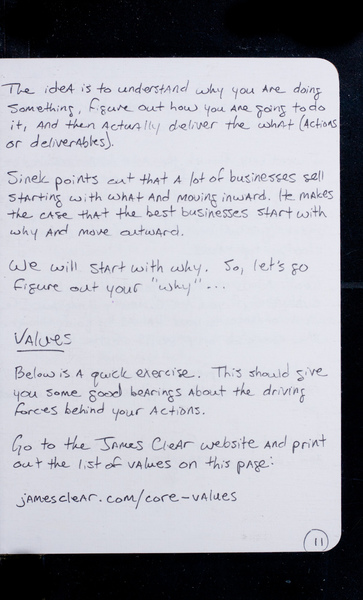 The idea is to understand why you are doing
something, figure out how you are going to do
it, and then actually deliver the what (actions
or deliverables).
Sinek points out that a lot of businesses sell
starting with what and moving inward. He makes
the case that the best businesses start with
why and move outward.
We will start with why. So, let's go
figure out your "why"...
Values
Below is a quick exercise. This should give
you some good bearings about the driving
forces behind your actions.
Go to the James Clear website and print
out the list of values on this page:
jamesclear.com/core-values
11